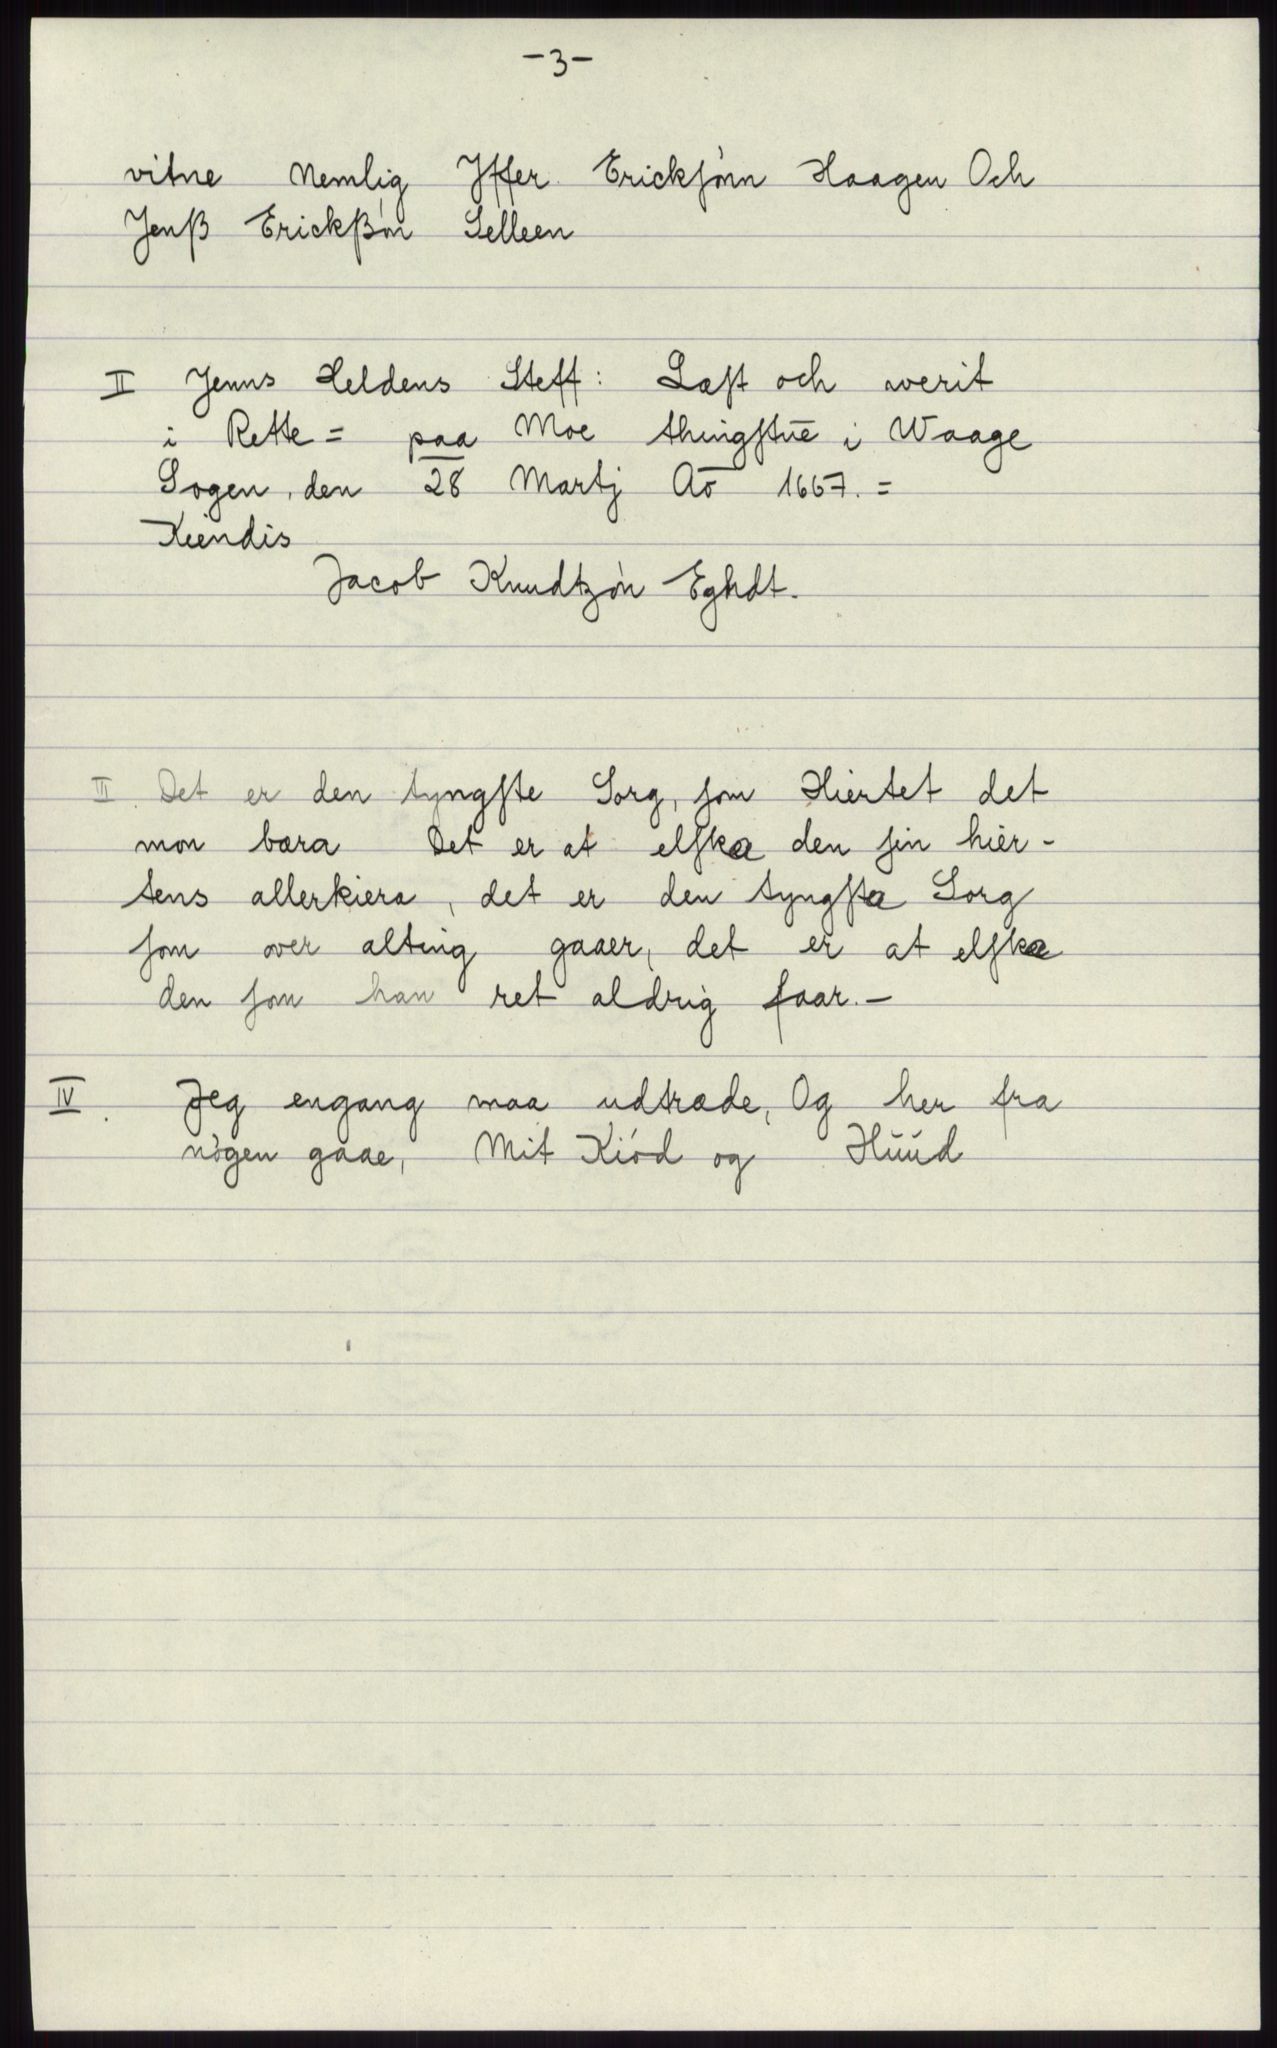 -3-
vitne Nemlig Iffer Erickſönn Haagen Och
Jenß Erickßön Selleen
II Jenns Heldens Steff: Læſt och werit
i Rette = paa Moe thingſtue i Waage
Sogen, den 28 Martj Aō 1667. =
Kiendis
Jacob Knudtzön Eghdt.
III. Det er den tyngſte Sorg, ſom Hiertet det
mon bæra Det er at elſka den ſin hier-
tens allerkiera, det er den tyngſta Sorg
ſom over alting gaaer, det er at elſka
den ſom han ret aldrig faar.-
IV. Jeg engang maa udtræde, Og her fra
nögen gaae, Mit Kiöd og Huud